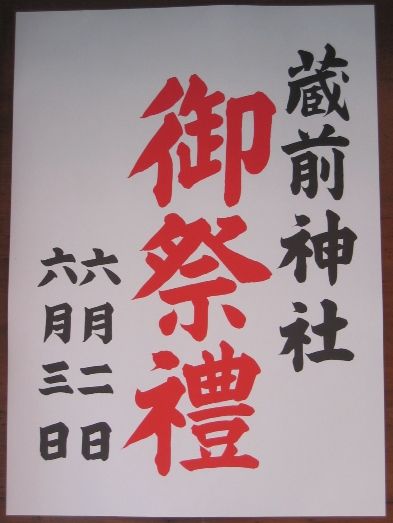 蔵前神社
御祭禮
六月二日
六月三日